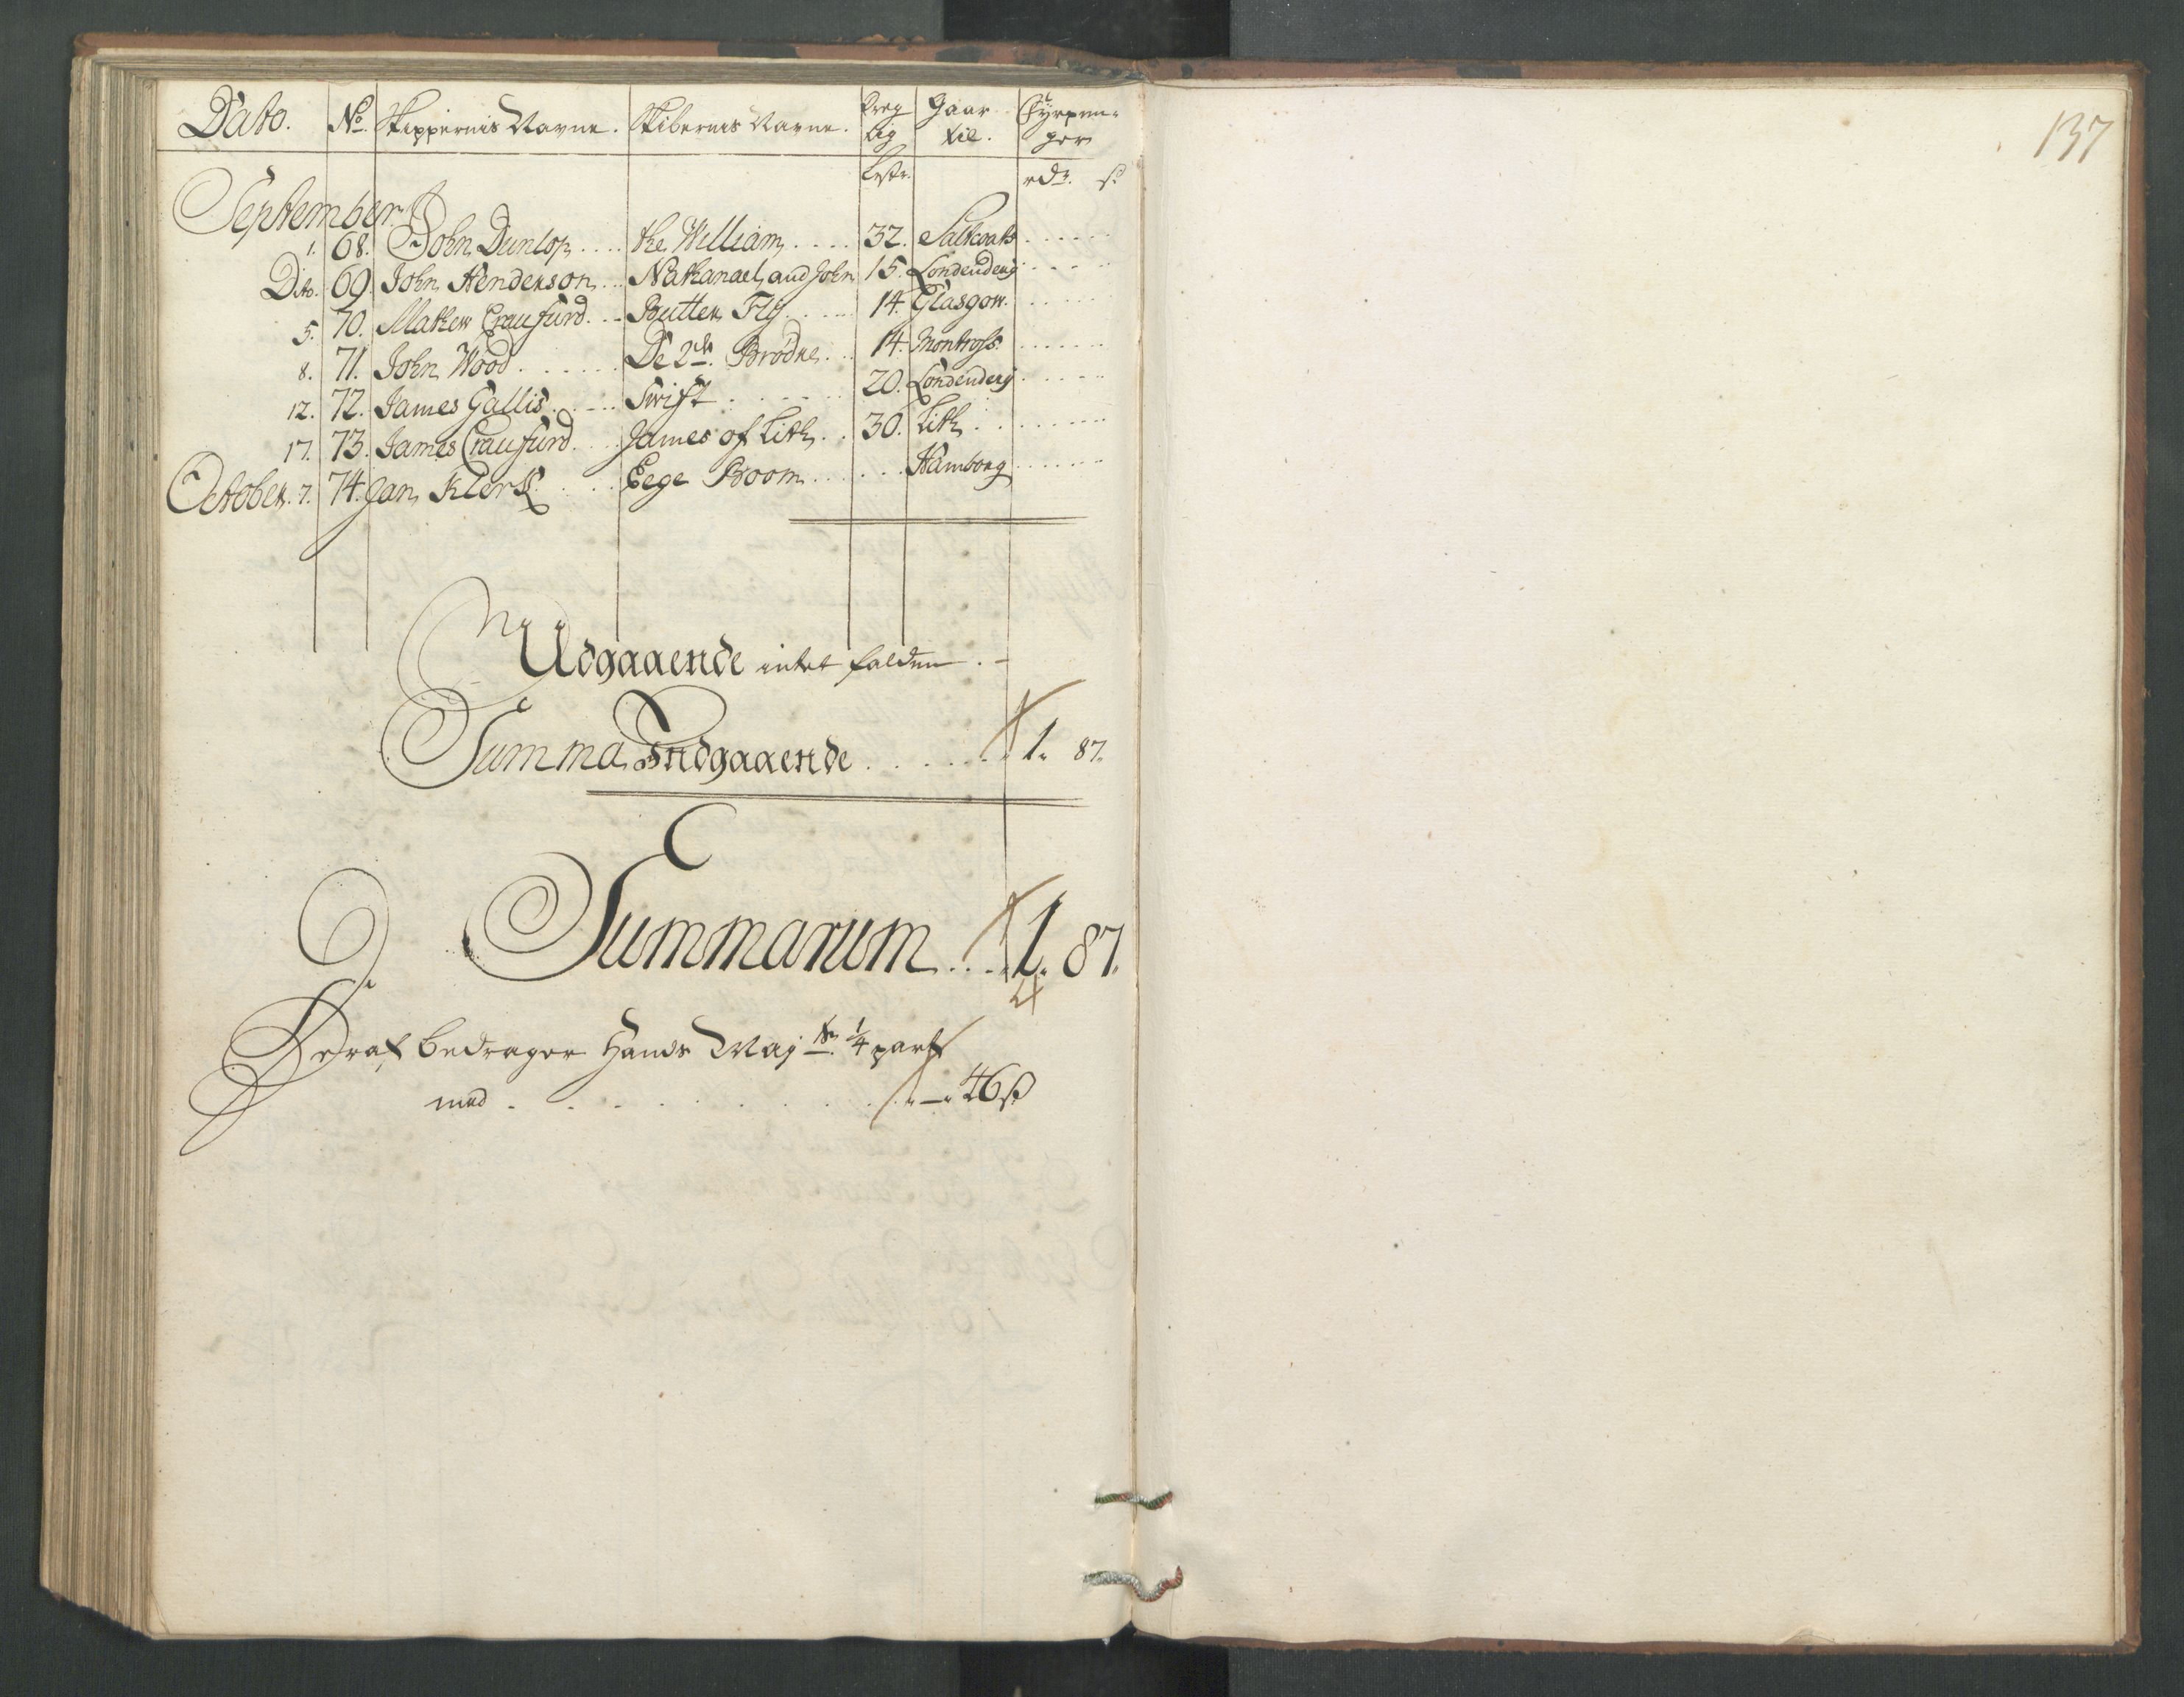 Dato. No. Skippernis Navne. Skibernis Navne. Dreg Gaar Fyrpen-
tig til. ger
Lestr. rdr. s
September
1. 68. John Dunlop .... the William .... 32. Saltcoats ......
Dito. 69. John Henderson .. Nathanael and John 15. Londendery ....
5. 70. Mathew Craufurd .. Butter Fly ..... 14. Glasgow ......
8. 71. John Wood ...... De 2de Brødre .. 14. Montross ......
12. 72. James Gallis .... Swift ...... 20. Londendery .....
17. 73. James Craufurd .. James of Lith .. 30. Lith ........
October. 7. 74. Jan Klerk .... Eege Boom ...... Hamborg ......
Udgaaende intet falden . -
Summa Indgaaende ....... 1. 87.
Summarum .... 1. 87.
4
Deraf bedrager Hands Maj ts. 1/4 part
med . . . . . . . . - 46 s
137